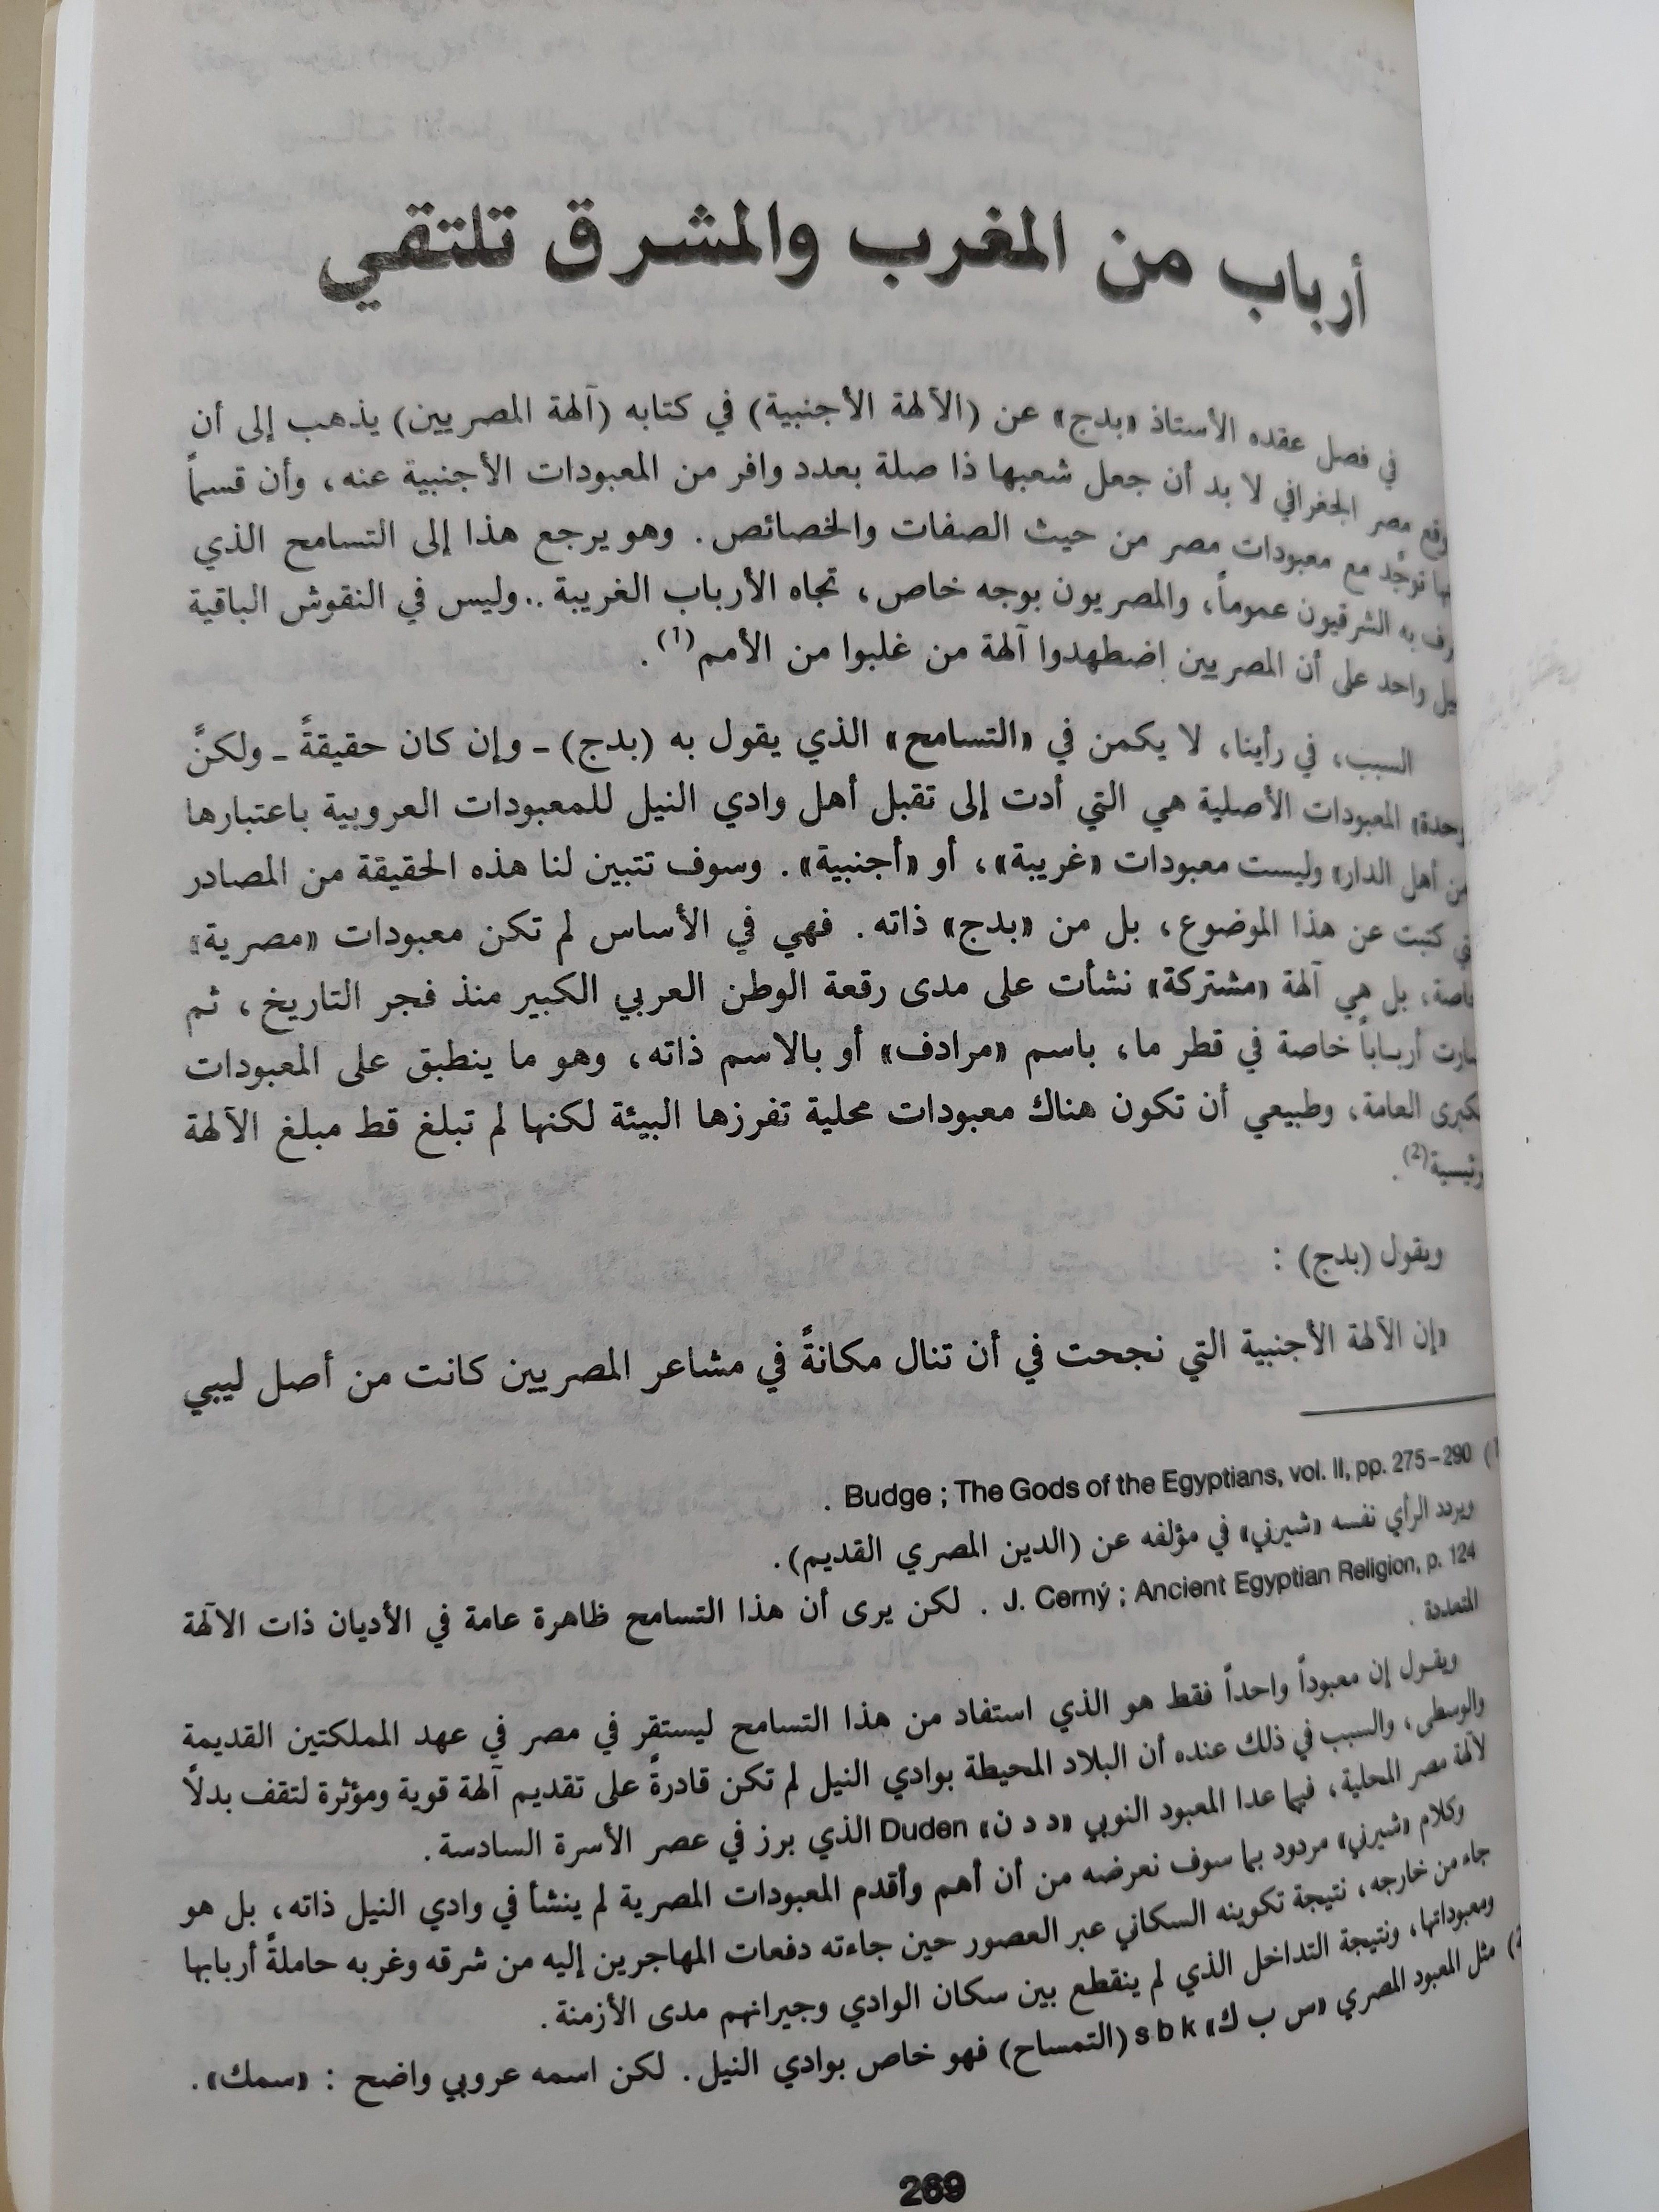 أرباب من المغرب والمشرق تلتقي
في فصل عقده الأستاذ «بدج» عن (الآلهة الأجنبية) في كتابه (آلهة المصريين) يذهب إلى أن
مصر الجغرافي لا بد أن جعل شعبها ذا صلة بعدد وافر من المعبودات الأجنبية عنه، وأن قسماً
توحَّد مع معبودات مصر من حيث الصفات والخصائص. وهو يرجع هذا إلى التسامح الذي
به الشرقيون عموماً، والمصريون بوجه خاص، تجاه الأرباب الغريبة.. وليس في النقوش الباقية
واحد على أن المصريين اضطهدوا آلهة من غلبوا من الأمم(1).
السبب، في رأينا، لا يكمن في «التسامح» الذي يقول به (بدج) ـ وإن كان حقيقةً ـ ولكنَّ
وحدة» المعبودات الأصلية هي التي أدت إلى تقبل أهل وادي النيل للمعبودات العروبية باعتبارها
من أهل الدار» وليست معبودات «غريبة»، أو «أجنبية». وسوف تتبين لنا هذه الحقيقة من المصادر
كتبت عن هذا الموضوع، بل من «بدج» ذاته. فهي في الأساس لم تكن معبودات «مصرية»
بل هي آلهة «مشتركة» نشأت على مدى رقعة الوطن العربي الكبير منذ فجر التاريخ، ثم
أرباباً خاصة في قطر ما، باسم «مرادف» أو بالاسم ذاته، وهو ما ينطبق على المعبودات
العامة، وطبيعي أن تكون هناك معبودات محلية تفرزها البيئة لكنها لم تبلغ قط مبلغ الآلهة
(2).
ويقول (بدج) :
«إن الآلهة الأجنبية التي نجحت في أن تنال مكانةً في مشاعر المصريين كانت من أصل ليبي
(1 Budge ; The Gods of the Egyptians, vol. II, pp. 275–290 .
ويردد الرأي نفسه «شيرني» في مؤلفه عن (الدين المصري القديم).
J. Cerný ; Ancient Egyptian Religion, p. 124 . لكن يرى أن هذا التسامح ظاهرة عامة في الأديان ذات الآلهة
المتعددة .
ويقول إن معبوداً واحداً فقط هو الذي استفاد من هذا التسامح ليستقر في مصر في عهد المملكتين القديمة
والوسطى، والسبب في ذلك عنده أن البلاد المحيطة بوادي النيل لم تكن قادرةً على تقديم آلهة قوية ومؤثرة لتقف بدلًا
لآلهة مصر المحلية، فيما عدا المعبود النوبي «د د ن» Duden الذي برز في عصر الأسرة السادسة.
وكلام «شيرني» مردود بما سوف نعرضه من أن أهم وأقدم المعبودات المصرية لم ينشأ في وادي النيل ذاته، بل هو
جاء من خارجه، نتيجة تكوينه السكاني عبر العصور حين جاءته دفعات المهاجرين إليه من شرقه وغربه حاملةً أربابها
ومعبوداتها، ونتيجة التداخل الذي لم ينقطع بين سكان الوادي وجيرانهم مدى الأزمنة.
(2 مثل المعبود المصري «س ب ك» s b k (التمساح) فهو خاص بوادي النيل. لكن اسمه عروبي واضح : «سمك».
269